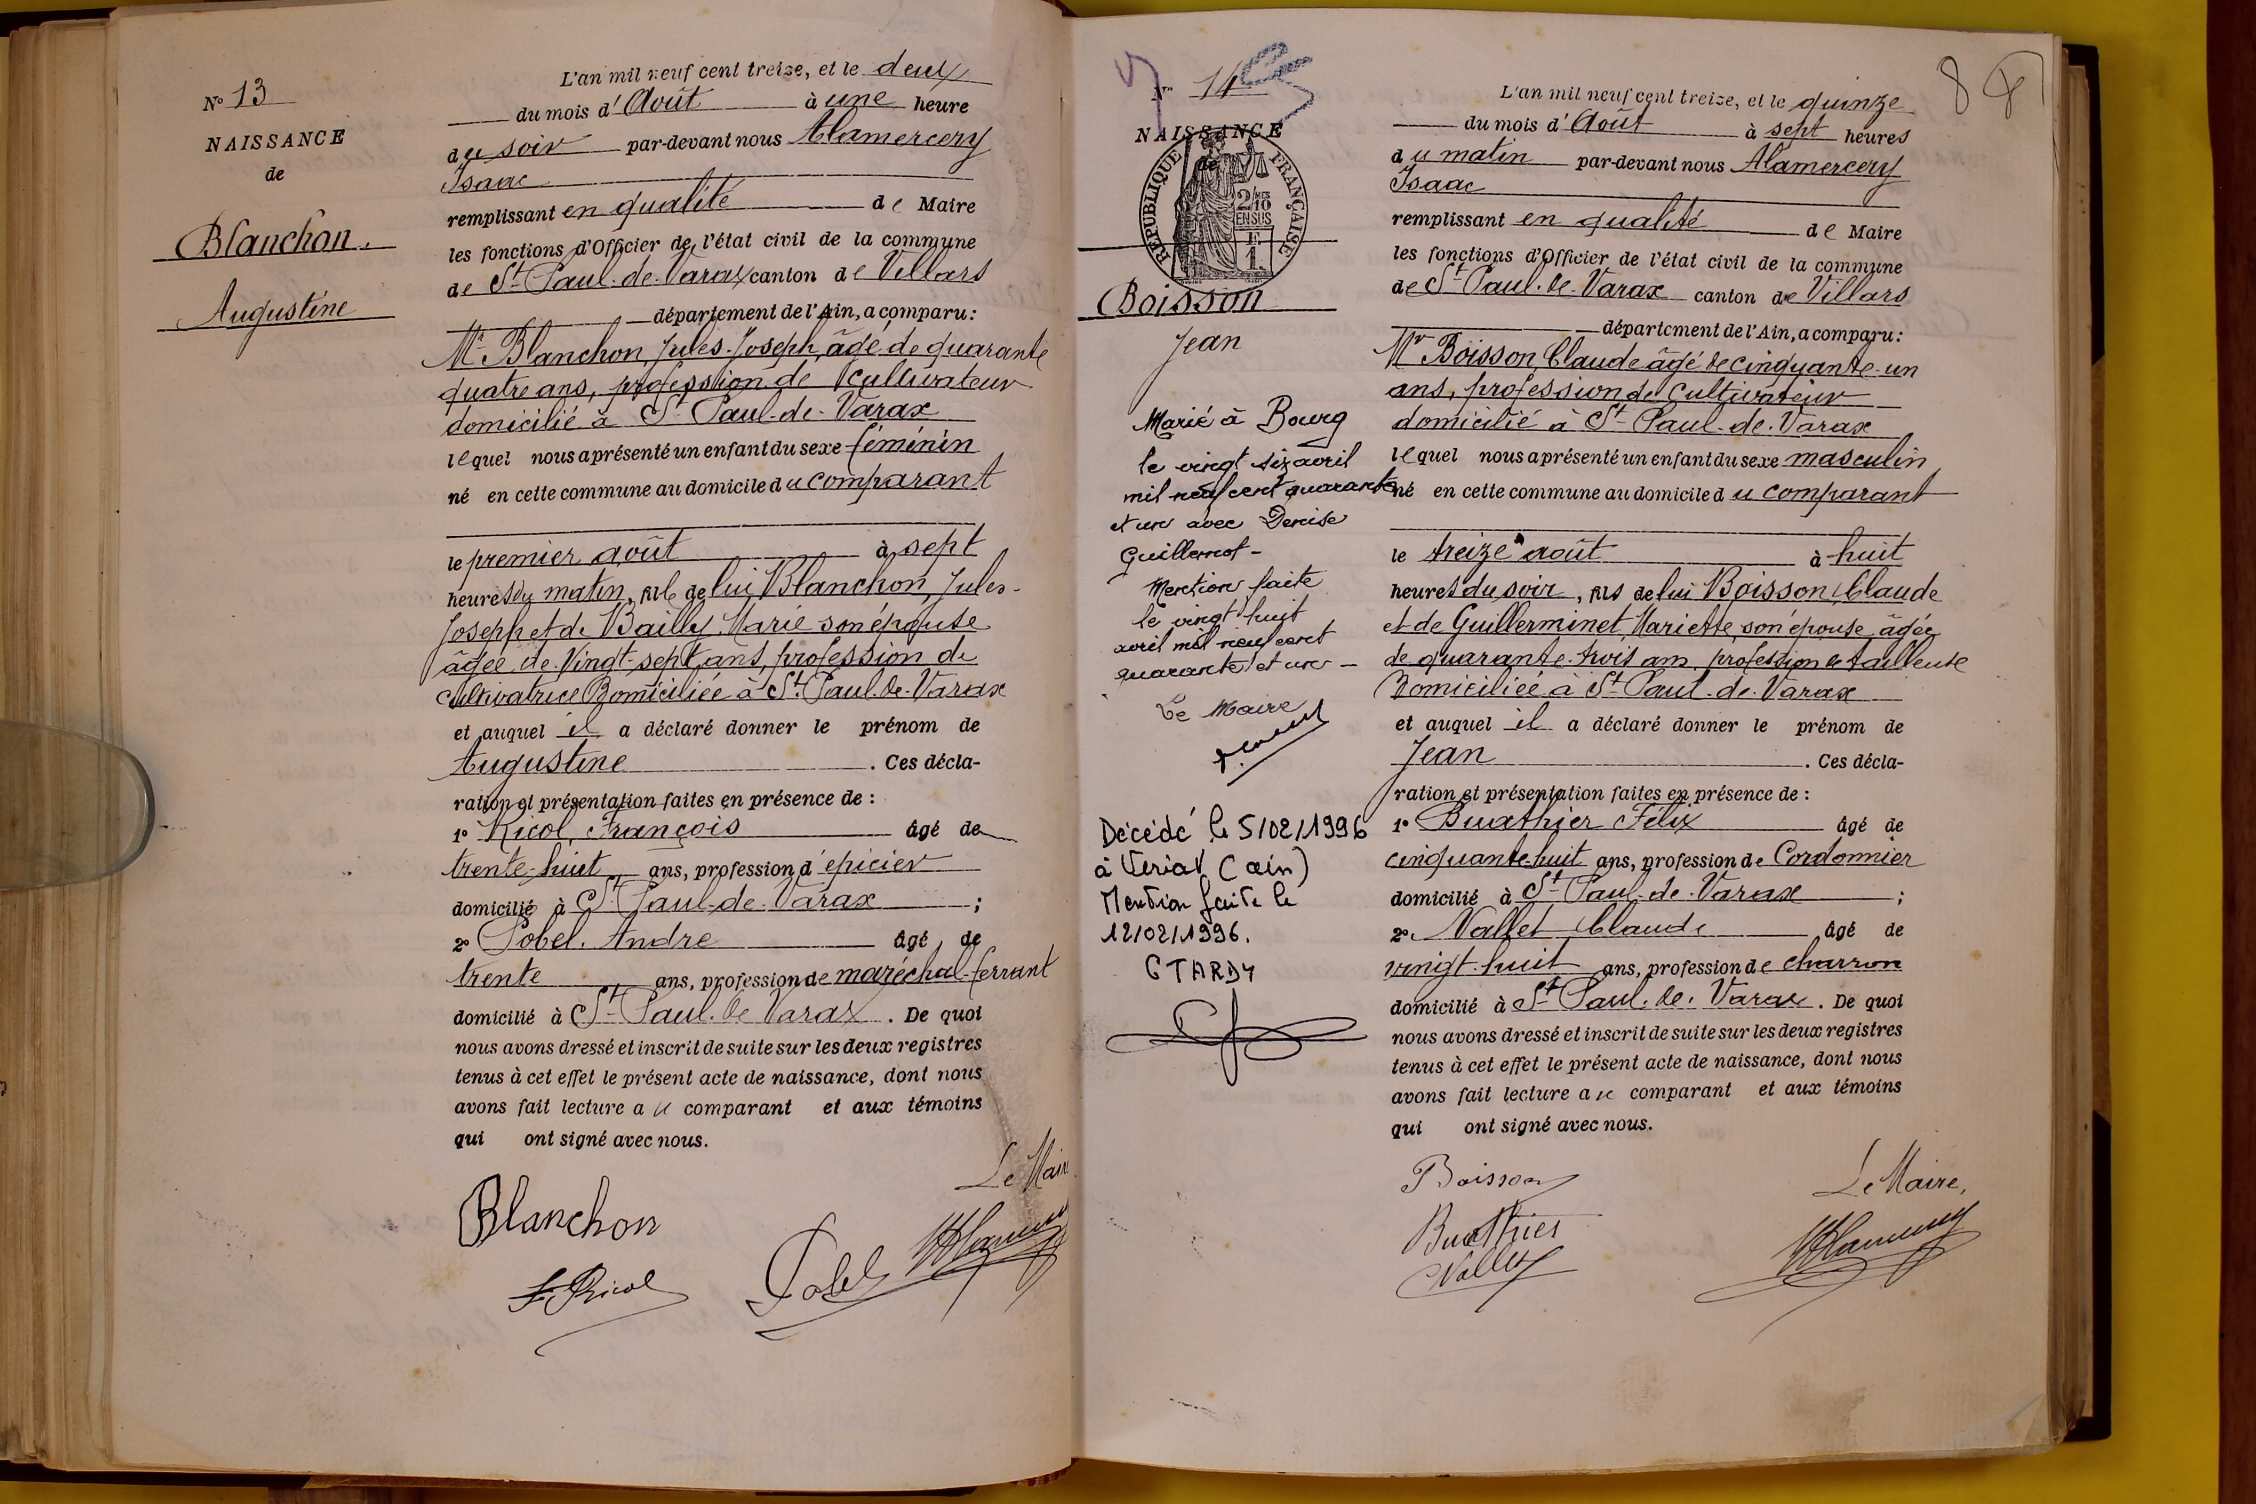 N° 13
NAISSANCE
de
Blanchon.
Augustine
L'an mil neuf cent treize, et le deux
du mois d'Août à une heure
du soir par-devant nous Alamercery
Isaac
remplissant en qualité de Maire
les fonctions d'Officier de l'état civil de la commune
de St Paul-de-Varax canton de Villars
département de l'Ain, a comparu:
Mr Blanchon, Jules-Joseph, âgé de quarante
quatre ans, profession de cultivateur
domicilié à St Paul-de-Varax
lequel nous a présenté un enfant du sexe féminin
né en cette commune au domicile du comparant
le premier août à sept
heures du matin, fille de lui Blanchon, Jules-
Joseph et de Bailly Marie son épouse
âgée de Vingt-sept ans, profession de
cultivatrice Domiciliée à St Paul-de-Varax
et auquel il a déclaré donner le prénom de
Augustine . Ces décla-
ration et présentation faites en présence de :
1° Ricol, François âgé de
trente-huit ans, profession d'épicier
domicilié à St Paul-de-Varax ;
2° Pobel, Andre âgé de
trente ans, profession de maréchal-ferrant
domicilié à St Paul-de Varax . De quoi
nous avons dressé et inscrit de suite sur les deux registres
tenus à cet effet le présent acte de naissance, dont nous
avons fait lecture au comparant et aux témoins
qui ont signé avec nous.
Le Maire
Blanchon
F. Ricol
Pobel
N° 14
NAISSANCE
de
RÉPUBLIQUE FRANÇAISE
2/10
EN SUS
1
Boisson
Jean
Marié à Bourg
le vingt six avril
mil neuf cent quarante
et un avec Denise
Guillemot -
Mention faite
le vingt huit
avril mil neuf cent
quarante et un -
Le Maire
Décédé le 5/02/1996
à Viriat (ain)
Mention faite le
12/02/1996.
C TARDY
8
L'an mil neuf cent treize, et le quinze
du mois d'Août à sept heures
du matin par-devant nous Alamercery
Isaac
remplissant en qualité de Maire
les fonctions d'Officier de l'état civil de la commune
de St Paul-de-Varax canton de Villars
département de l'Ain, a comparu:
Mr Boisson, Claude âgé de cinquante-un
ans, profession de cultivateur
domicilié à St Paul-de-Varax
lequel nous a présenté un enfant du sexe masculin
né en cette commune au domicile du comparant
le treize août à huit
heures du soir, fils de lui Boisson, Claude
et de Guillerminet, Mariette, son épouse, âgée
de quarante-trois ans, profession de tailleuse
Domiciliée à St Paul-de-Varax
et auquel il a déclaré donner le prénom de
Jean . Ces décla-
ration et présentation faites en présence de :
1° Buathier Félix âgé de
cinquante-huit ans, profession de Cordonnier
domicilié à St Paul-de-Varax ;
2° Nallet Claude âgé de
vingt-huit ans, profession de charron
domicilié à St Paul-de-Varax . De quoi
nous avons dressé et inscrit de suite sur les deux registres
tenus à cet effet le présent acte de naissance, dont nous
avons fait lecture au comparant et aux témoins
qui ont signé avec nous.
Boisson
Le Maire,
Buathier
Nallet